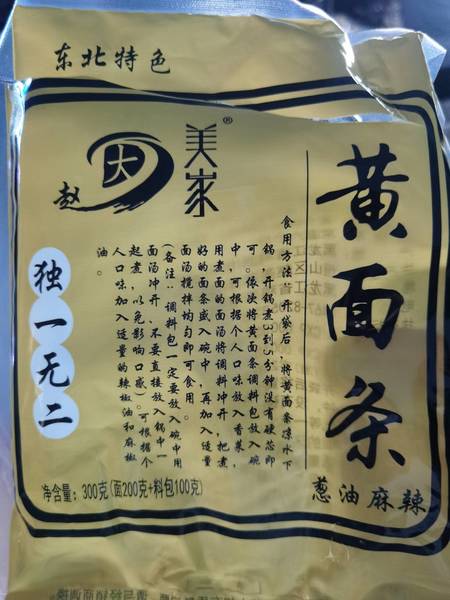 东北特色
黄面条
葱油麻辣
美家®
大
赵
独一无二
食用方法:开袋后,将黄面条凉水下
锅,开锅煮3到5分钟没有硬芯即
可。依次将黄面条调料包放入碗
中,可根据个人口味放入香菜,
用煮面的面汤将调料冲开,把煮
好的面条盛入碗中,再加入适量
面汤搅拌均匀即可食用。
(备注:调料包一定要放入碗中用
面汤冲开,不要直接放入锅中一
起煮,以免影响口感)。可根据个
人口味加入适量的辣椒油和麻椒
油。
净含量:300克(面200克+料包100克)